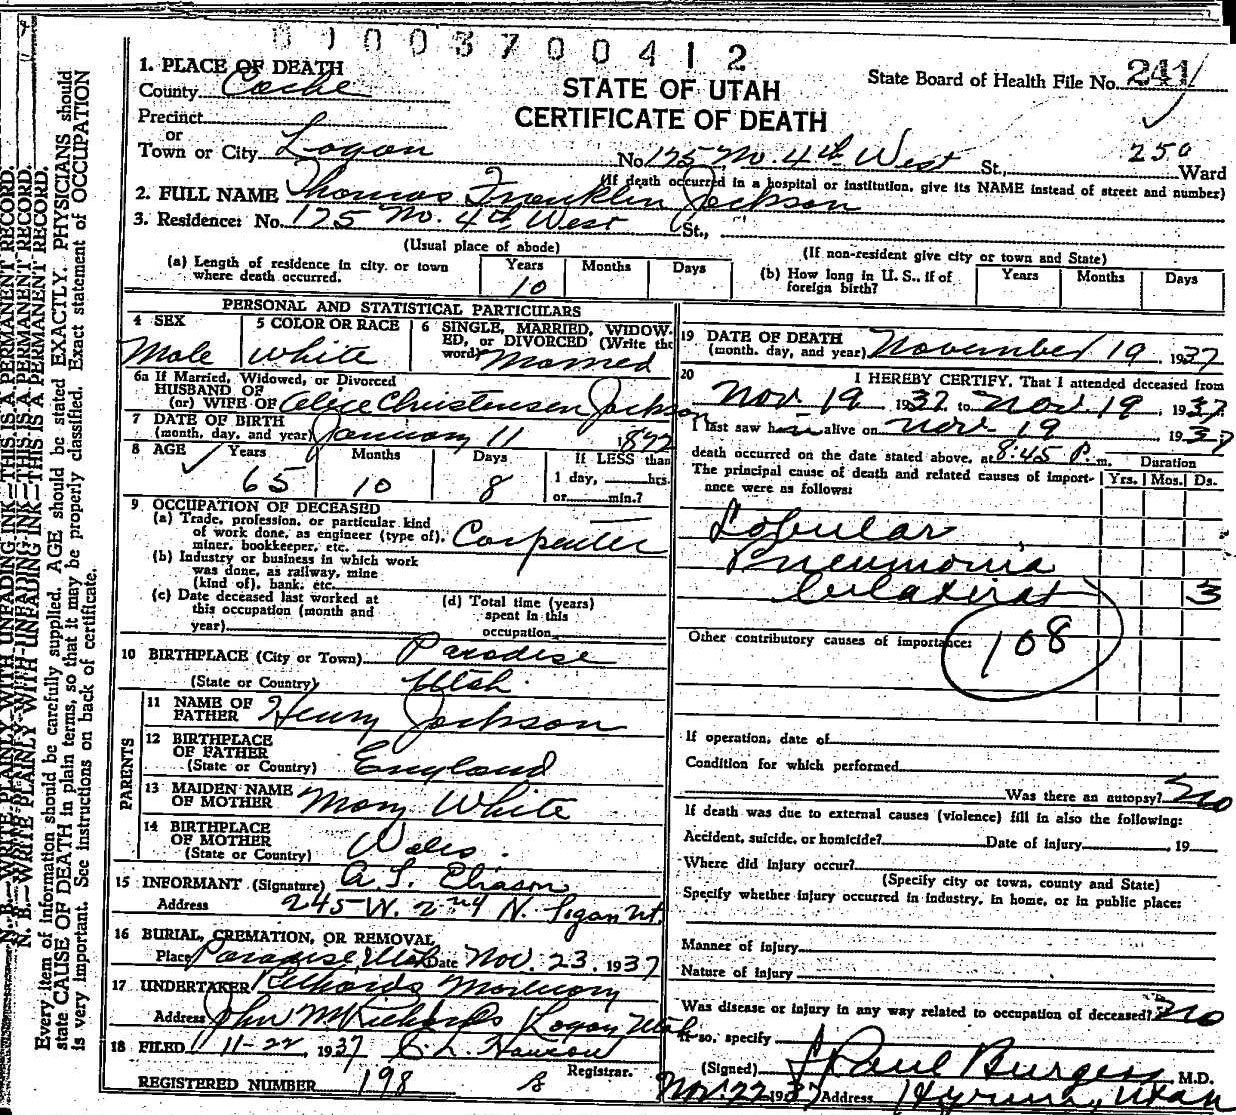 0 1 0 0 3 7 0 0 4 1 2
1. PLACE OF DEATH
County Cache
STATE OF UTAH
CERTIFICATE OF DEATH
State Board of Health File No. 241
Precinct
or
Town or City Logan No. 175 No. 4th West St., 250 Ward
(If death occurred in a hospital or institution, give its NAME instead of street and number)
2. FULL NAME Thomas Franklin Jackson
3. Residence: No. 175 No. 4th West St.,
(Usual place of abode) (If non-resident give city or town and State)
(a) Length of residence in city or town where death occurred. Years 10 Months Days
(b) How long in U. S., if of foreign birth? Years Months Days
PERSONAL AND STATISTICAL PARTICULARS
4 SEX Male
5 COLOR OR RACE White
6 SINGLE, MARRIED, WIDOWED, or DIVORCED (Write the word) Married
6a If Married, Widowed, or Divorced
HUSBAND OF
(or) WIFE OF Alice Christensen Jackson
7 DATE OF BIRTH
(month, day, and year) January 11 1872
8 AGE Years 65 Months 10 Days 8 If LESS than 1 day, hrs. or min.?
9 OCCUPATION OF DECEASED
(a) Trade, profession, or particular kind of work done, as engineer (type of), miner, bookkeeper, etc. Carpenter
(b) Industry or business in which work was done, as railway, mine (kind of), bank, etc.
(c) Date deceased last worked at this occupation (month and year)
(d) Total time (years) spent in this occupation
10 BIRTHPLACE (City or Town) Paradise
(State or Country) Utah
PARENTS
11 NAME OF FATHER Henry Jackson
12 BIRTHPLACE OF FATHER
(State or Country) England
13 MAIDEN NAME OF MOTHER Mary White
14 BIRTHPLACE OF MOTHER
(State or Country) Wales.
15 INFORMANT (Signature) A. L. Eliason
Address 245 W. 2nd N. Logan Ut.
16 BURIAL, CREMATION, OR REMOVAL
Place Paradise, Utah Date Nov. 23, 1937
17 UNDERTAKER Richards Mortuary
Address John M Richards Logan Utah
18 FILED 11-22, 1937 Registrar.
REGISTERED NUMBER 198
19 DATE OF DEATH
(month, day, and year) November 19 1937
20 I HEREBY CERTIFY, That I attended deceased from
Nov 19 1937 to Nov. 19, 1937
I last saw him alive on Nov 19, 1937
death occurred on the date stated above, at 8:45 P. m.
Duration
The principal cause of death and related causes of importance were as follows: Yrs. Mos. Ds.
Lobular
Pneumonia
bilateral 3
Other contributory causes of importance: 108
If operation, date of
Condition for which performed
Was there an autopsy? No
If death was due to external causes (violence) fill in also the following:
Accident, suicide, or homicide? Date of injury , 19
Where did injury occur?
(Specify city or town, county and State)
Specify whether injury occurred in industry, in home, or in public place:
Manner of injury
Nature of injury
Was disease or injury in any way related to occupation of deceased? No
If so, specify
(Signed) Paul Burgess M.D.
Nov. 22 1937 Address Hyrum, Utah
N. B.—WRITE PLAINLY WITH UNFADING INK—THIS IS A PERMANENT RECORD.
Every item of information should be carefully supplied. AGE should be stated EXACTLY. PHYSICIANS should
state CAUSE OF DEATH in plain terms, so that it may be properly classified. Exact statement of OCCUPATION
is very important. See instructions on back of certificate.